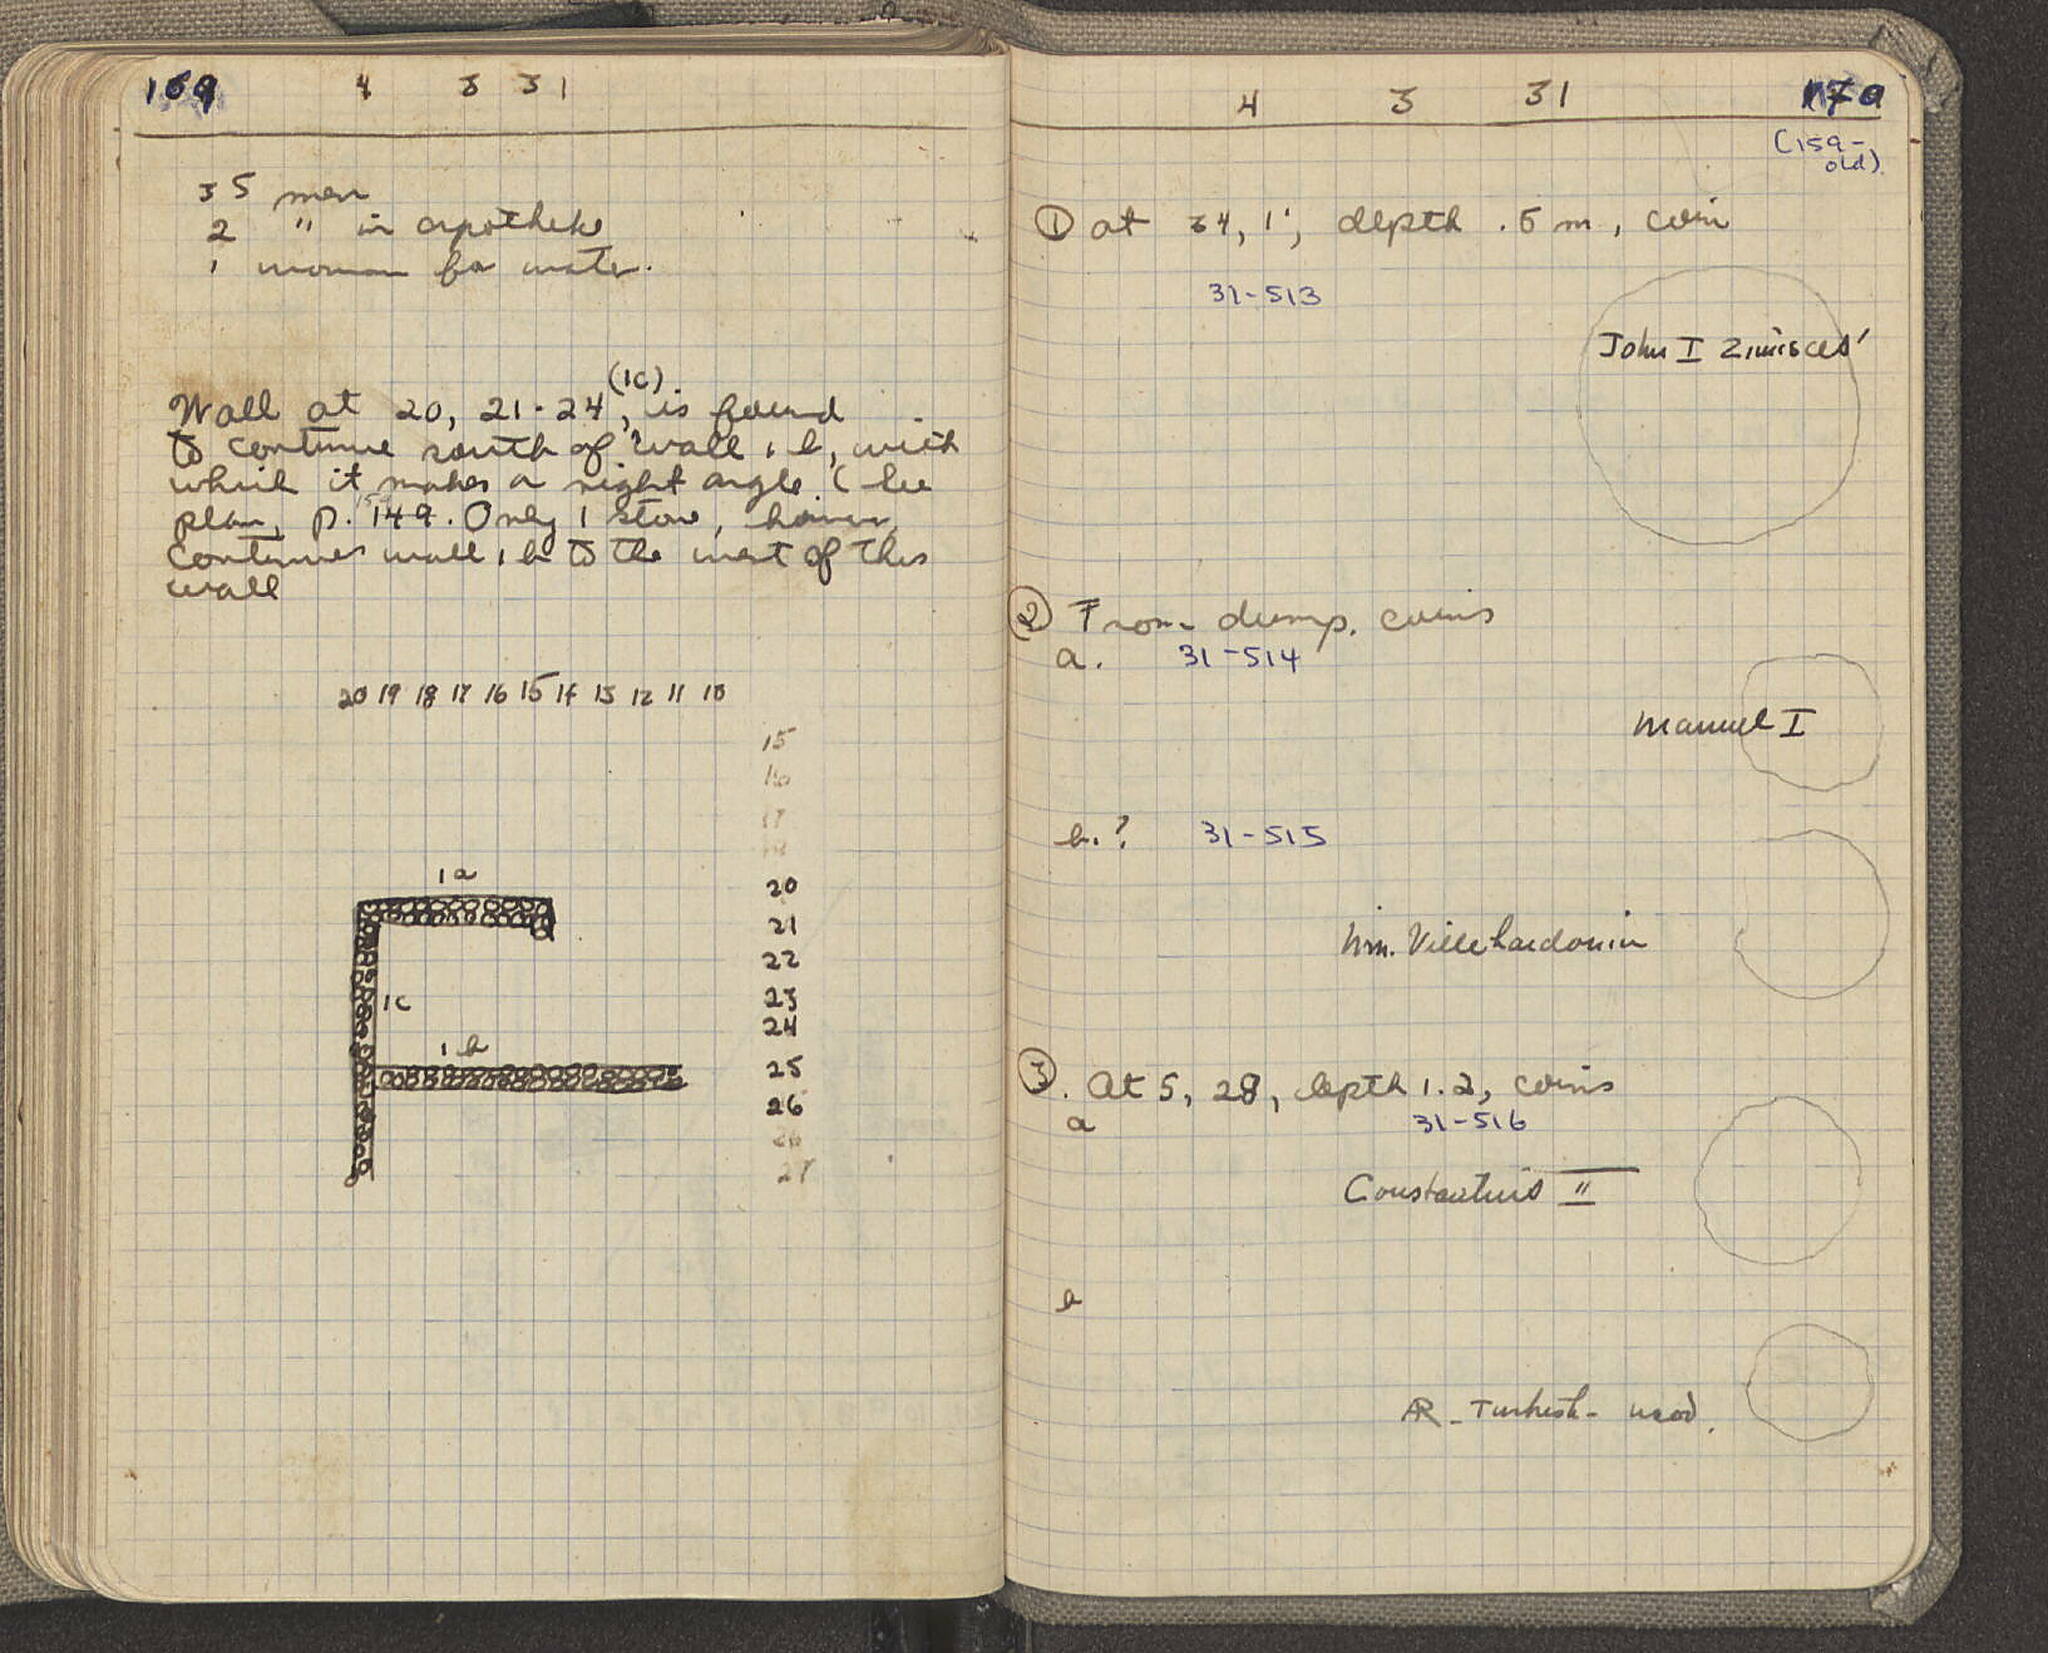 169 4 3 31
35 men
2 " in apotheke
1 woman for water.
(1c)
Wall at 20, 21-24, is found
to continue south of wall 1 b, with
which it makes a right angle. (See
plan, p. 149. Only 1 stone, however,
continues wall 1 b to the west of this
wall
20 19 18 17 16 15 14 13 12 11 10
15
16
17
18
20
21
22
23
24
25
26
26
27
1a
1c
1 b
4 3 31 170
(159-
old)
① at 34, 1', depth .5 m, coin
31-513
John I Zimisces'
② From dump. coins
a. 31-514
Manuel I
b. ? 31-515
Wm. Villehardouin
③. At 5, 28, depth 1.2, coins
a 31-516
Constantius II
b
AR - Turkish - mod.